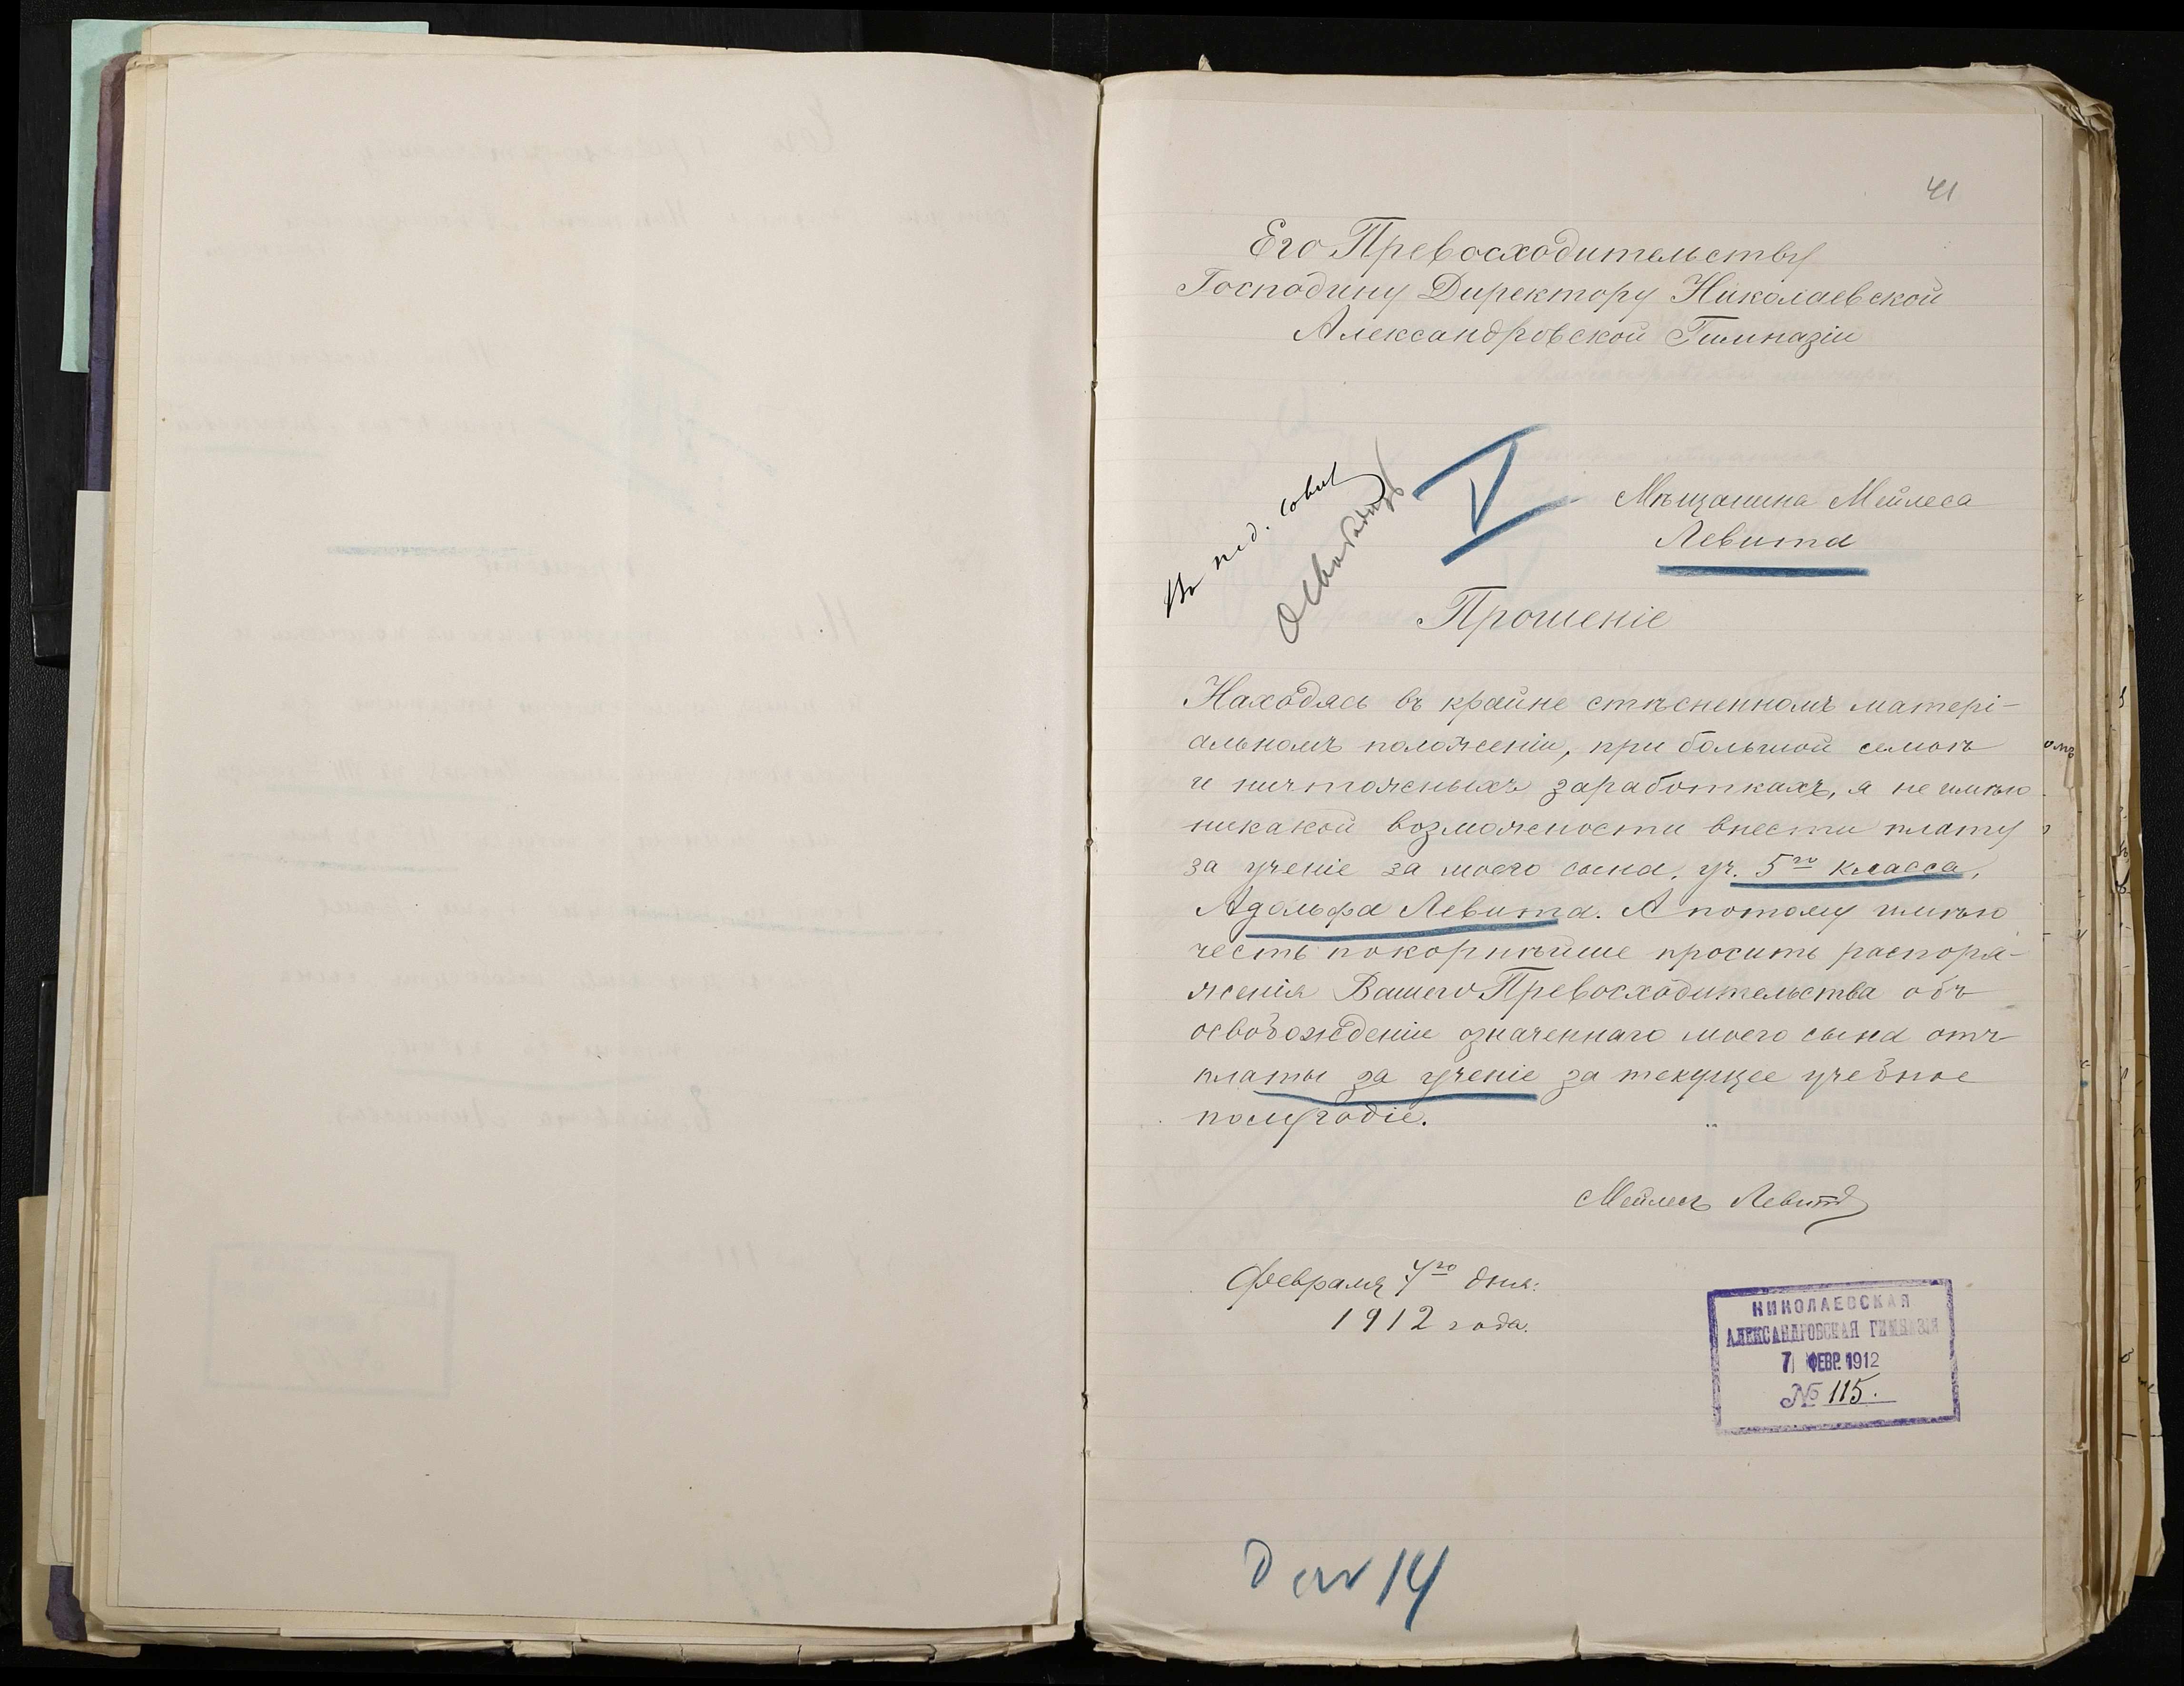 41
Его Превосходительству
Господину Директору Николаевской
Александровской Гимназіи
Въ пед. совѣтъ
Освободить
V
Мѣщанина Мейлеса
Левита
Прошеніе
Находясь въ крайне стѣсненномъ матері-
альномъ положеніи, при большой семьѣ
и ничтожныхъ заработкахъ, я не имѣю
никакой возможности внести плату
за ученіе за моего сына, уч. 5го класса,
Адольфа Левита. А потому имѣю
честь покорнѣйше просить распоря-
женія Вашего Превосходительства объ
освобожденіи означеннаго моего сына отъ
платы за ученіе за текущее учебное
полугодіе.
Мейлесъ Левитъ
Февраля 7го дня:
1912 года.
НИКОЛАЕВСКАЯ
АЛЕКСАНДРОВСКАЯ ГИМНАЗІЯ
7 ФЕВР. 1912
№ 115.
14